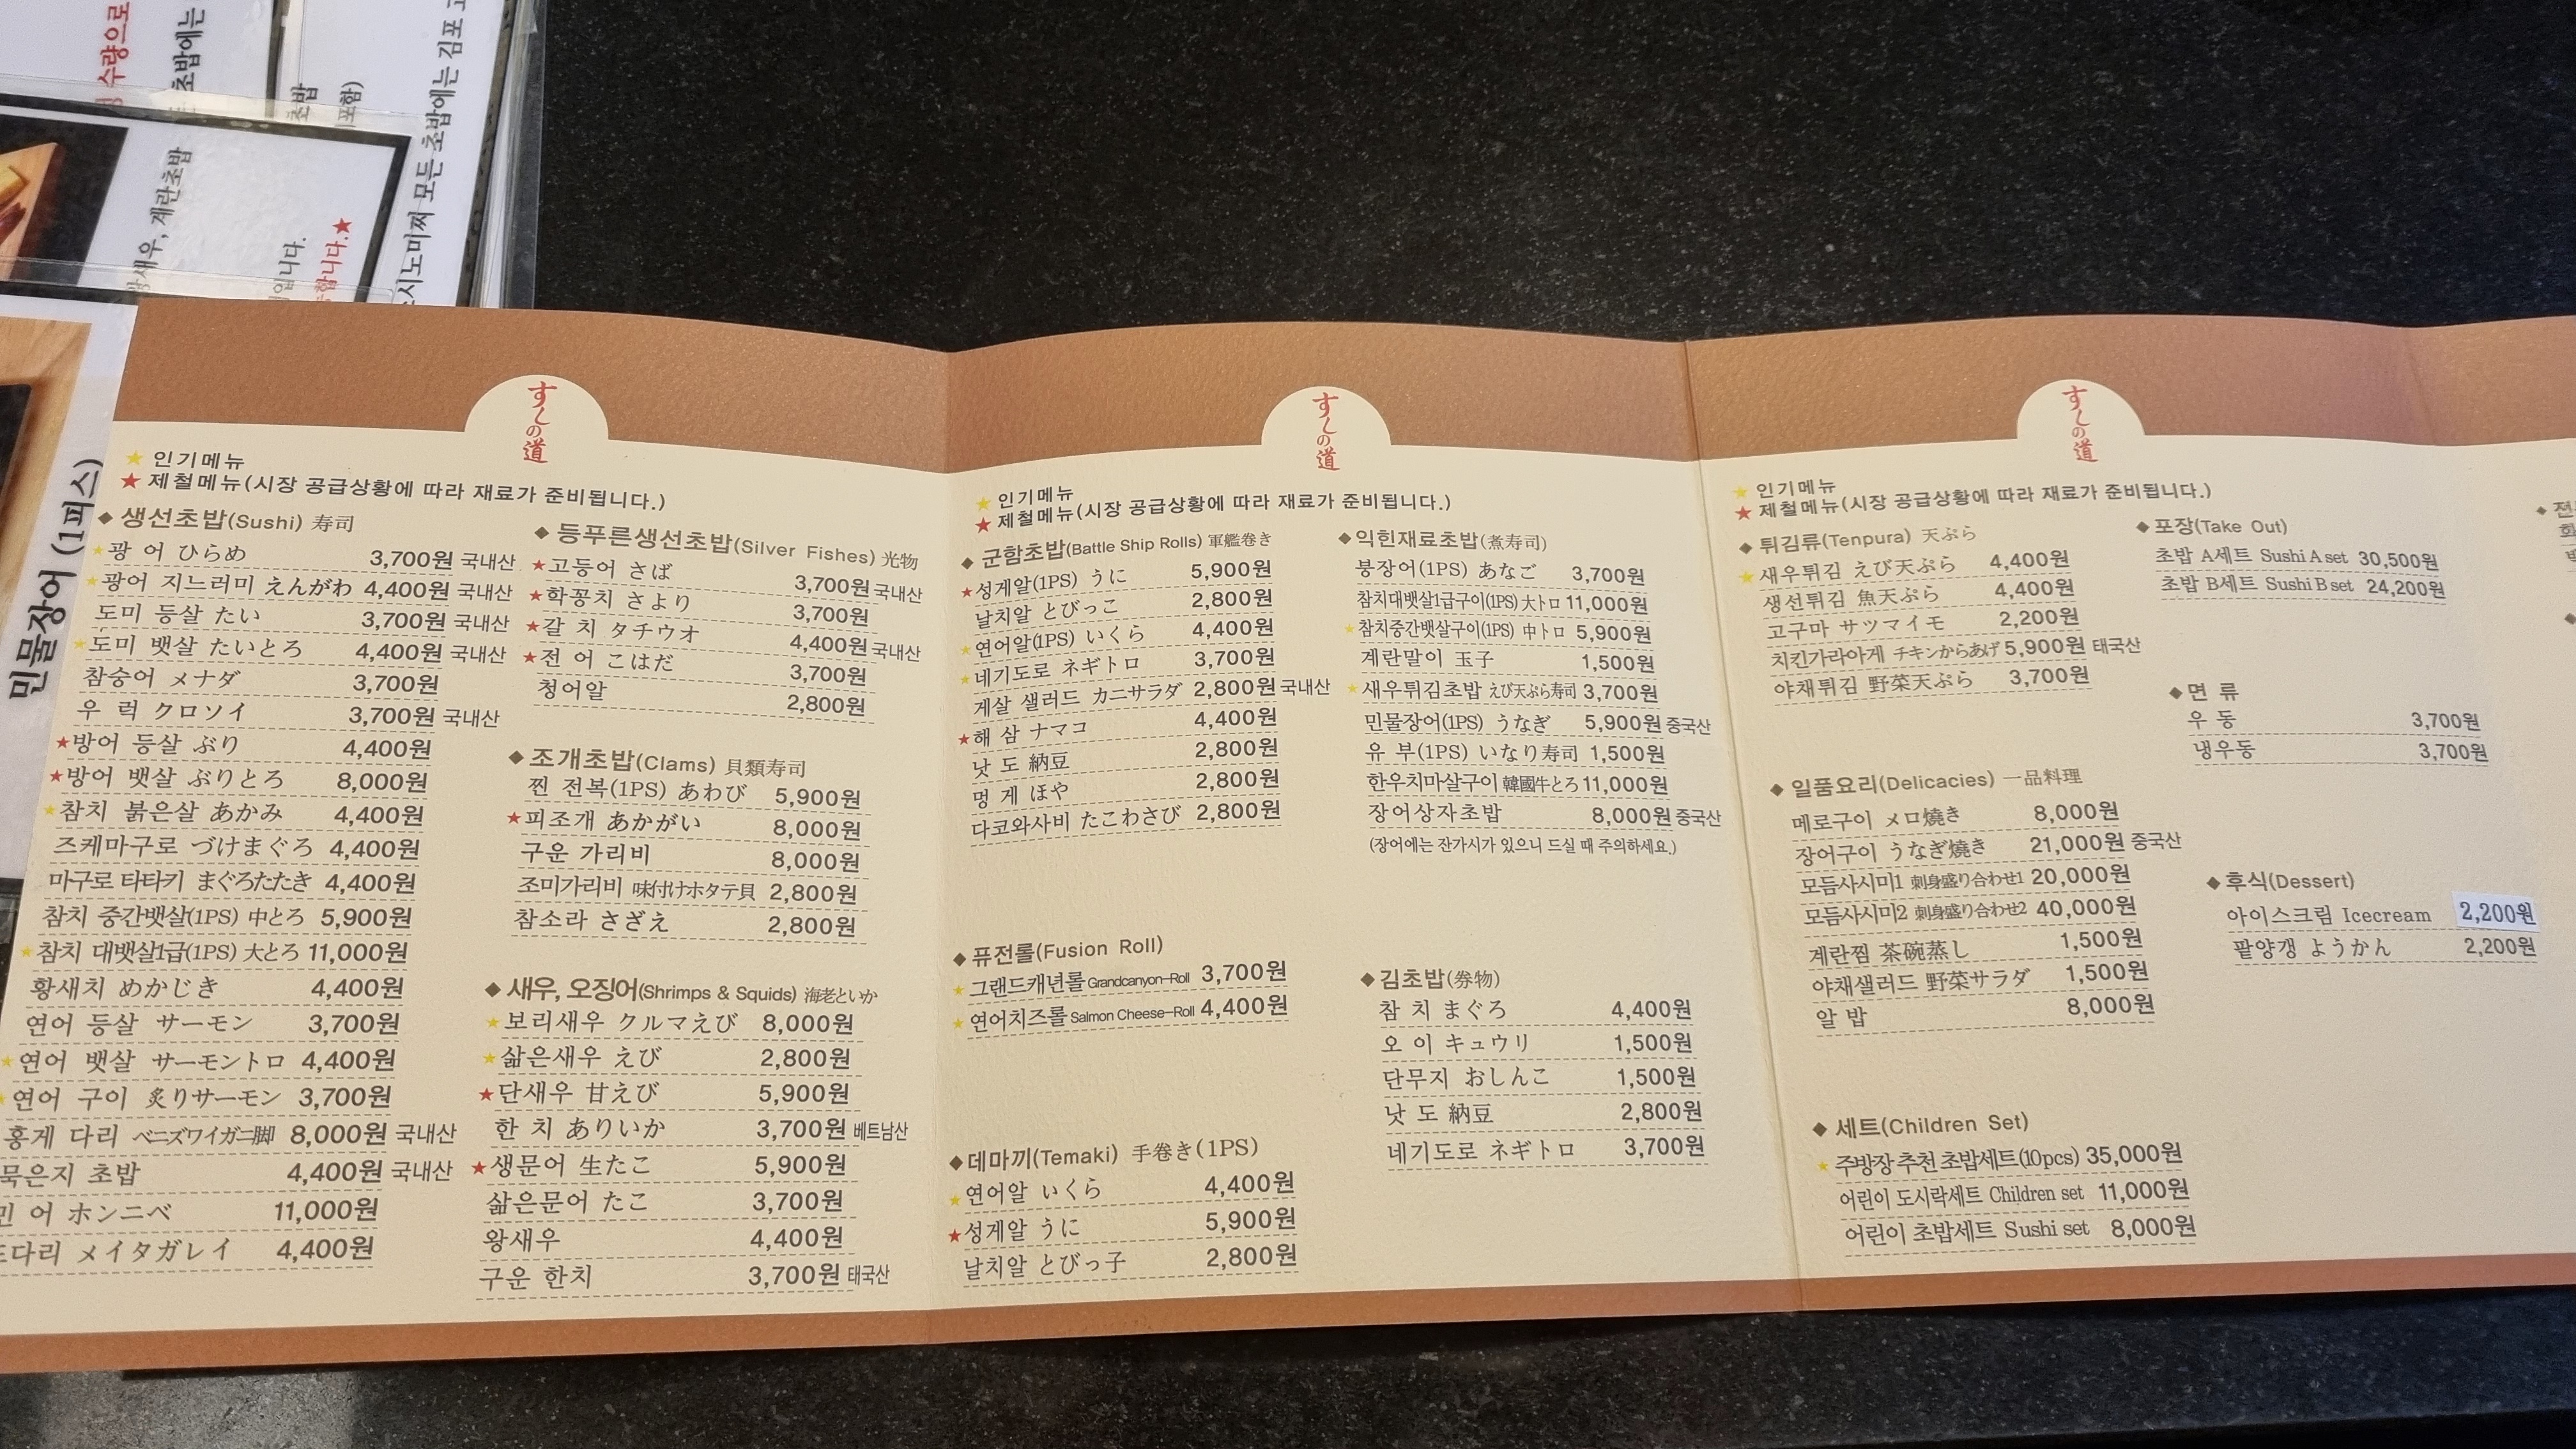 수량으로
초밥에는
초밥
포함)
모든 초밥에는 김포
새우, 계란초밥
입니다.
합니다.★
시노미찌
민물장어 (1피스)
すしの道
★ 인기메뉴
★ 제철메뉴(시장 공급상황에 따라 재료가 준비됩니다.)
◆ 생선초밥(Sushi) 寿司
★광 어 ひらめ 3,700원 국내산
★광어 지느러미 えんがわ 4,400원 국내산
도미 등살 たい 3,700원 국내산
★도미 뱃살 たいとろ 4,400원 국내산
참숭어 メナダ 3,700원
우 럭 クロソイ 3,700원 국내산
★방어 등살 ぶり 4,400원
★방어 뱃살 ぶりとろ 8,000원
★참치 붉은살 あかみ 4,400원
즈케마구로 づけまぐろ 4,400원
마구로 타타키 まぐろたたき 4,400원
참치 중간뱃살(1PS) 中とろ 5,900원
★참치 대뱃살1급(1PS) 大とろ 11,000원
황새치 めかじき 4,400원
연어 등살 サーモン 3,700원
★연어 뱃살 サーモントロ 4,400원
★연어 구이 炙りサーモン 3,700원
홍게 다리 ベニズワイガニ脚 8,000원 국내산
묵은지 초밥 4,400원 국내산
민 어 ホンニベ 11,000원
도다리 メイタガレイ 4,400원
◆ 등푸른생선초밥(Silver Fishes) 光物
★고등어 さば 3,700원 국내산
★학꽁치 さより 3,700원
★갈 치 タチウオ 4,400원 국내산
★전 어 こはだ 3,700원
청어알 2,800원
◆ 조개초밥(Clams) 貝類寿司
찐 전복(1PS) あわび 5,900원
★피조개 あかがい 8,000원
구운 가리비 8,000원
조미가리비 味付けホタテ貝 2,800원
참소라 さざえ 2,800원
◆ 새우, 오징어(Shrimps & Squids) 海老といか
★보리새우 クルマえび 8,000원
★삶은새우 えび 2,800원
★단새우 甘えび 5,900원
한 치 ありいか 3,700원 베트남산
★생문어 生たこ 5,900원
삶은문어 たこ 3,700원
왕새우 4,400원
구운 한치 3,700원 태국산
すしの道
★ 인기메뉴
★ 제철메뉴(시장 공급상황에 따라 재료가 준비됩니다.)
◆ 군함초밥(Battle Ship Rolls) 軍艦卷き
★성게알(1PS) うに 5,900원
날치알 とびっこ 2,800원
★연어알(1PS) いくら 4,400원
★네기도로 ネギトロ 3,700원
게살 샐러드 カニサラダ 2,800원 국내산
★해 삼 ナマコ 4,400원
낫 도 納豆 2,800원
멍 게 ほや 2,800원
다코와사비 たこわさび 2,800원
◆ 퓨전롤(Fusion Roll)
★그랜드캐년롤 Grandcanyon-Roll 3,700원
★연어치즈롤 Salmon Cheese-Roll 4,400원
◆ 데마끼(Temaki) 手卷き(1PS)
★연어알 いくら 4,400원
★성게알 うに 5,900원
날치알 とびっ子 2,800원
◆ 익힌재료초밥(煮寿司)
붕장어(1PS) あなご 3,700원
참치대뱃살1급구이(1PS) 大トロ 11,000원
★참치중간뱃살구이(1PS) 中トロ 5,900원
계란말이 玉子 1,500원
★새우튀김초밥 えび天ぷら寿司 3,700원
민물장어(1PS) うなぎ 5,900원 중국산
유 부(1PS) いなり寿司 1,500원
한우치마살구이 韓國牛とろ 11,000원
장어상자초밥 8,000원 중국산
(장어에는 잔가시가 있으니 드실 때 주의하세요.)
◆ 김초밥(券物)
참 치 まぐろ 4,400원
오 이 キュウリ 1,500원
단무지 おしんこ 1,500원
낫 도 納豆 2,800원
네기도로 ネギトロ 3,700원
すしの道
★ 인기메뉴
★ 제철메뉴(시장 공급상황에 따라 재료가 준비됩니다.)
◆ 튀김류(Tenpura) 天ぷら
★새우튀김 えび天ぷら 4,400원
생선튀김 魚天ぷら 4,400원
고구마 サツマイモ 2,200원
치킨가라아게 チキンからあげ 5,900원 태국산
야채튀김 野菜天ぷら 3,700원
◆ 일품요리(Delicacies) 一品料理
메로구이 メロ燒き 8,000원
장어구이 うなぎ燒き 21,000원 중국산
모듬사시미1 刺身盛り合わせ1 20,000원
모듬사시미2 刺身盛り合わせ2 40,000원
계란찜 茶碗蒸し 1,500원
야채샐러드 野菜サラダ 1,500원
알 밥 8,000원
◆ 세트(Children Set)
★주방장 추천 초밥세트(10pcs) 35,000원
어린이 도시락세트 Children set 11,000원
어린이 초밥세트 Sushi set 8,000원
◆ 포장(Take Out)
초밥 A세트 Sushi A set 30,500원
초밥 B세트 Sushi B set 24,200원
◆ 면 류
우 동 3,700원
냉우동 3,700원
◆ 후식(Dessert)
아이스크림 Icecream 2,200원
팥양갱 ようかん 2,200원